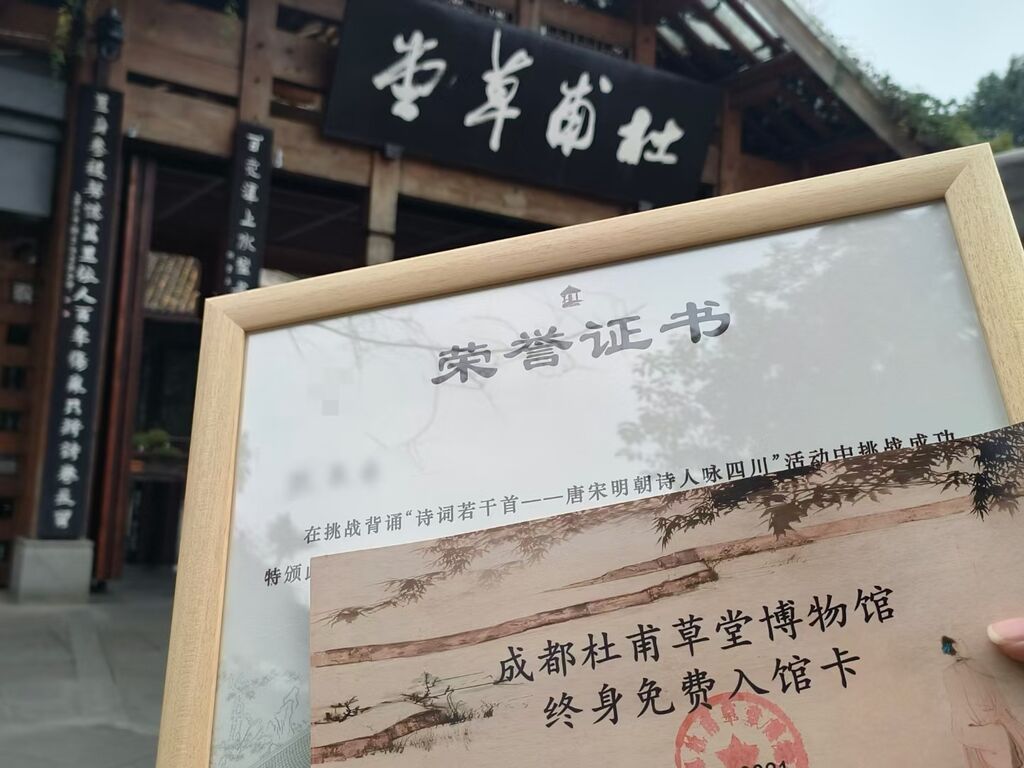 杜甫草堂
百花潭上水
荣誉证书
在挑战背诵“诗词若干首——唐宋明朝诗人咏四川”活动中挑战成功
特颁
成都杜甫草堂博物馆
终身免费入馆卡